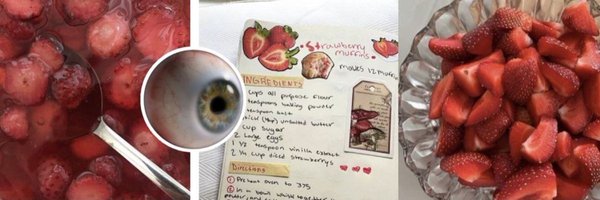 Strawberry
muffins
makes 12 muffins
INGREDIENTS
cups all purpose flour
teaspoons baking powder
teaspoon salt
stick (½cup) unsalted butter
cup sugar
2 large eggs
1 ½ teaspoon vanilla extract
2 ¼ cup diced strawberries
Directions
① Preheat oven to 375
② In a bowl whisk together